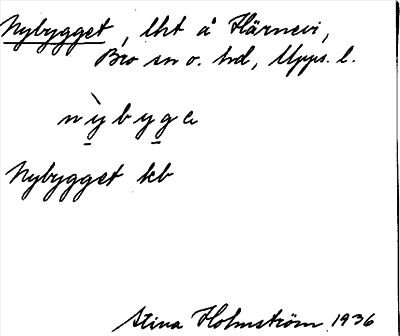 Nybygget, lht å Härnevi,
Bro sn o. hd, Upps. l.
nỳbyga
Nybygget kb
Stina Holmström 1936